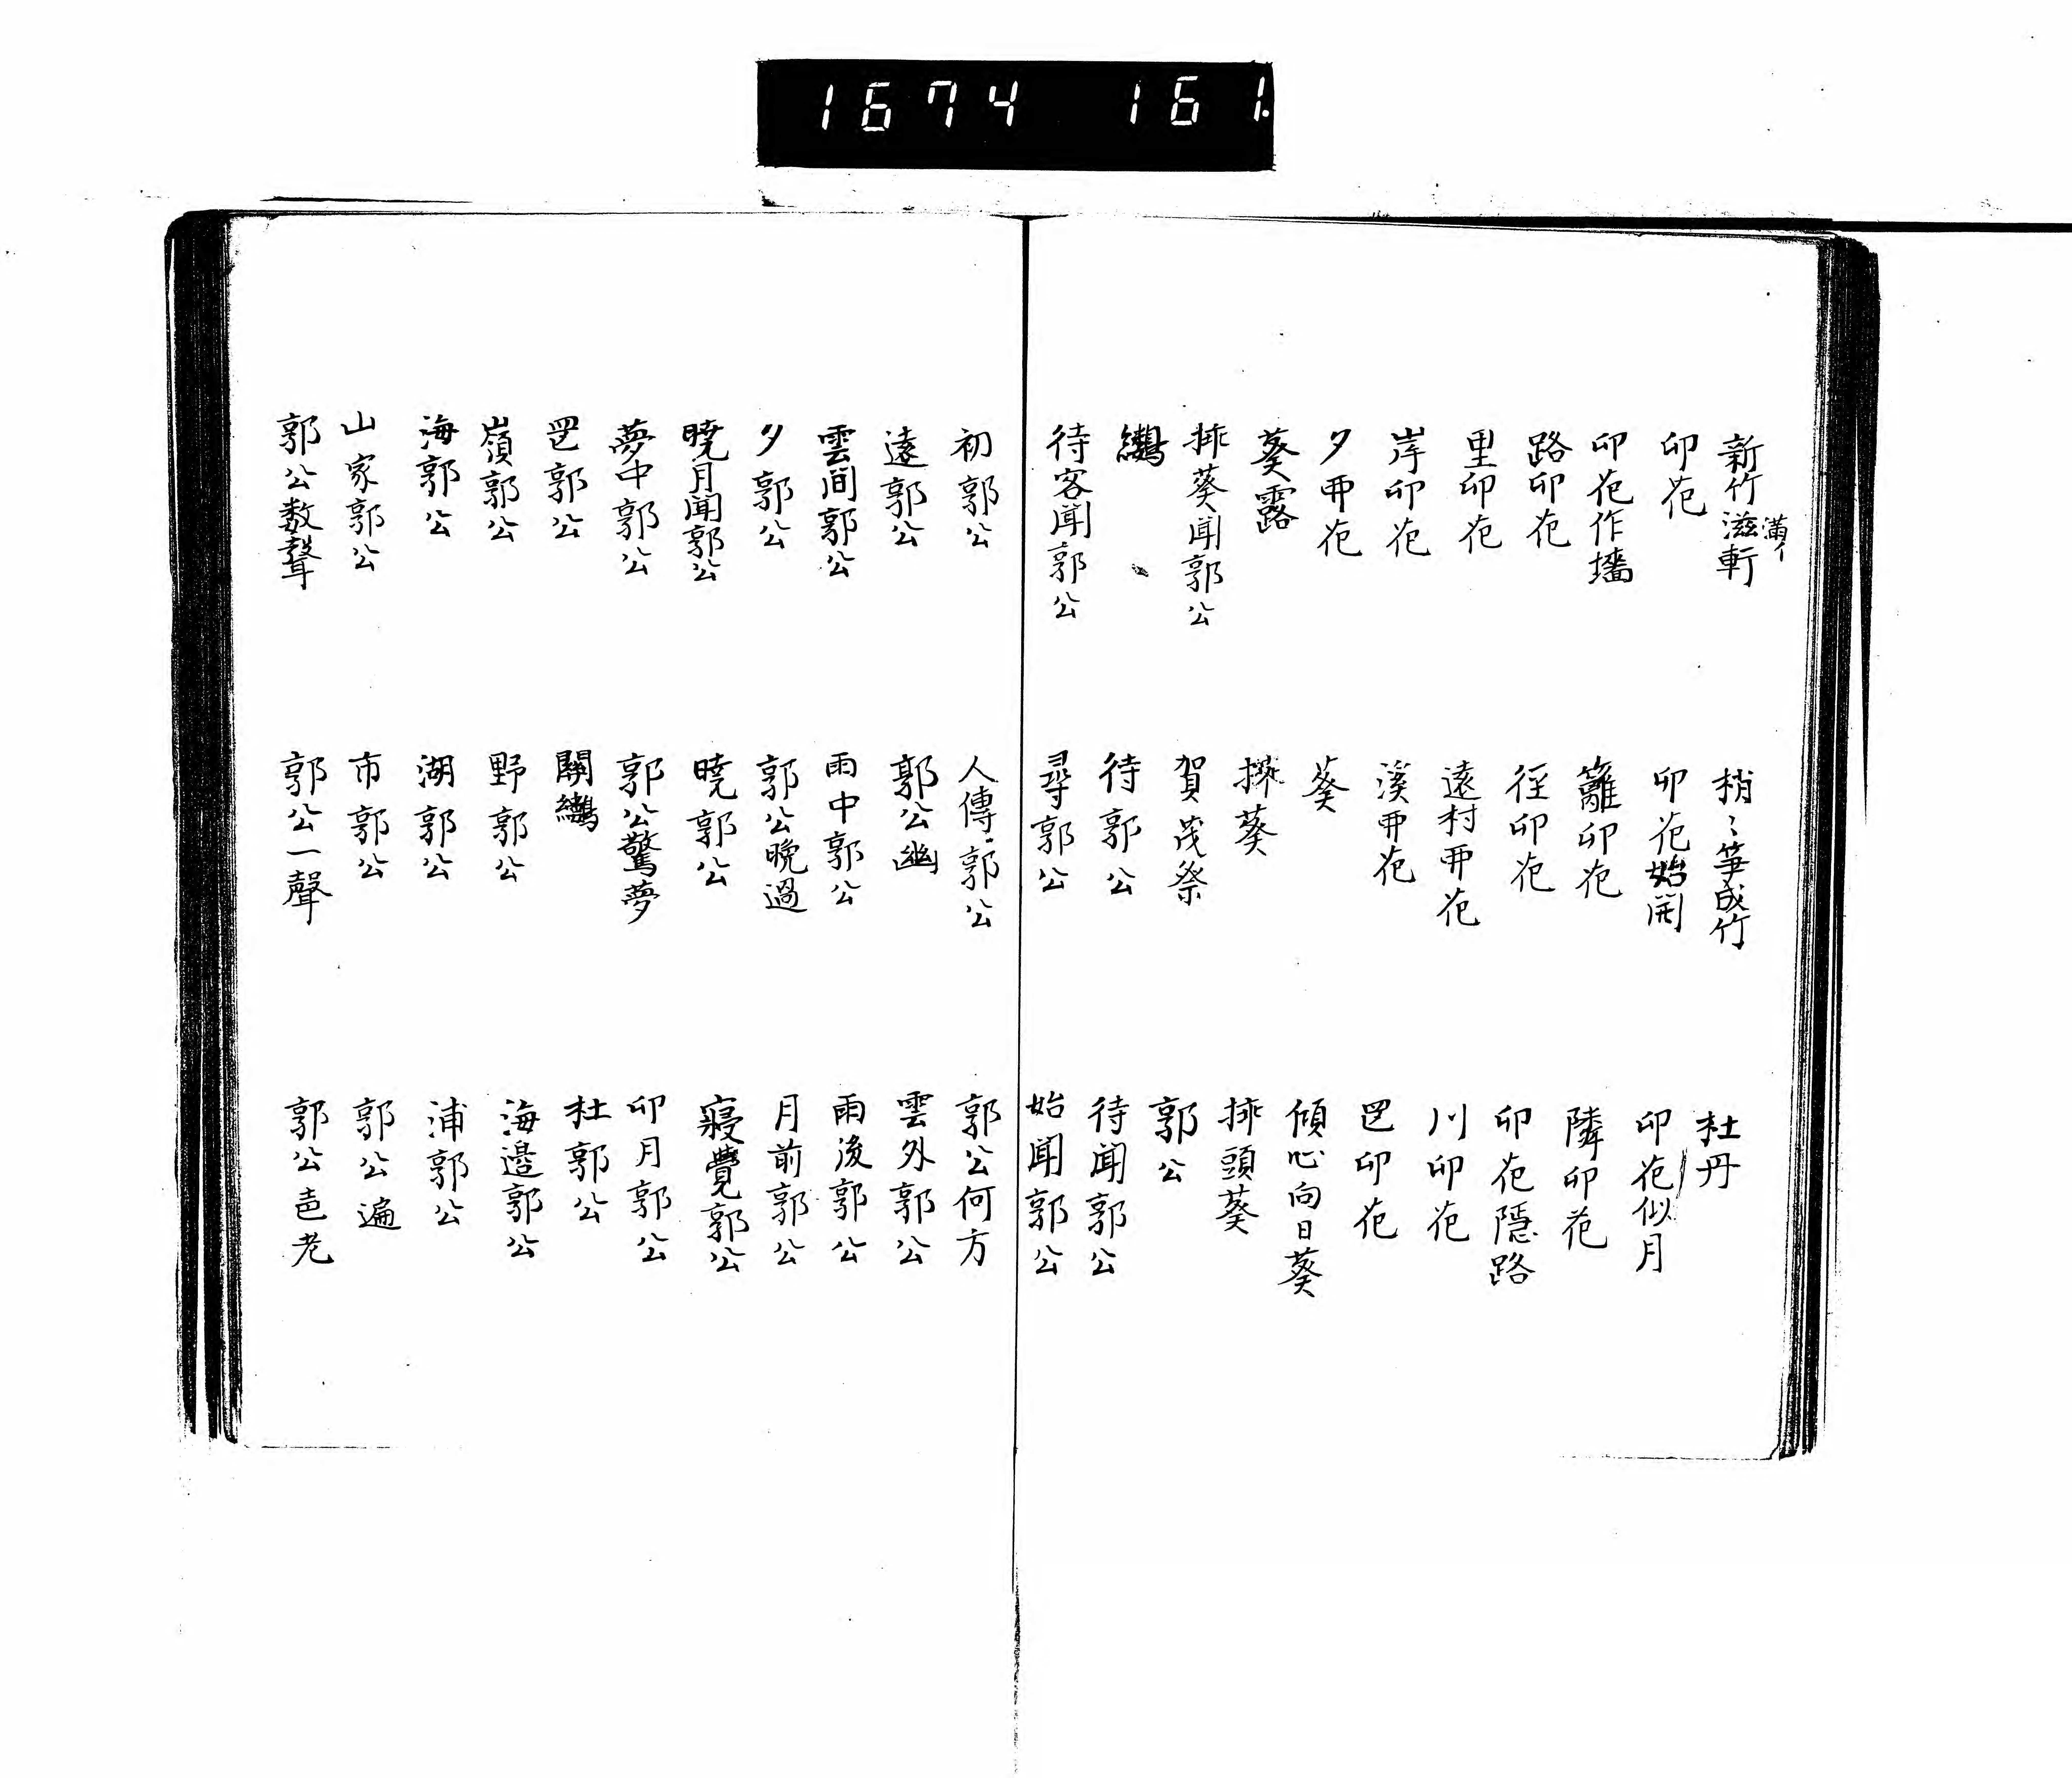 新竹滋軒 満イ 梢〻笋成竹 杜丹
卯花 卯花始開 卯花似月
卯花作墻 籬卯花 隣卯花
路卯花 徑卯花 卯花隠路
里卯花 遠村卯花 川卯花
岸卯花 溪卯花 罡卯花
夕卯花 葵 傾心向日葵
葵露 採葵 挿頭葵
挿葵聞郭公 賀茂祭 郭公
待郭公 待聞郭公
待客聞郭公 尋郭公 始聞郭公
初郭公 人傳郭公 郭公何方
遠郭公 郭公幽 雲外郭公
雲間郭公 雨中郭公 雨後郭公
夕郭公 郭公晩過 月前郭公
曉月聞郭公 曉郭公 寢覺郭公
夢中郭公 郭公驚夢 卯月郭公
罡郭公 關 杜郭公
嶺郭公 野郭公 海邉郭公
海郭公 湖郭公 浦郭公
山家郭公 市郭公 郭公遍
郭公数聲 郭公一聲 郭公声老
1674 161